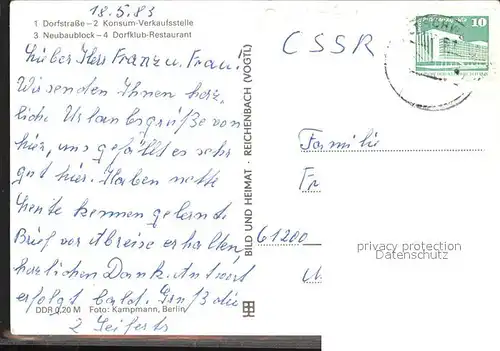 18.5.83
1 Dorfstraße – 2 Konsum-Verkaufsstelle
3 Neubaublock – 4 Dorfklub-Restaurant
Lieber Herr Franz u. Frau!
Wir senden Ihnen herz-
liche Urlaubsgrüße von
hier, uns gefällt es sehr
gut hier. Haben nette
Leute kennen gelernt.
Brief vor Abreise erhalten,
herzlichen Dank. Antwort
erfolgt bald. Gruß die
2 Seiferts
DDR 0,20 M Foto: Kampmann, Berlin
BILD UND HEIMAT · REICHENBACH (VOGTL)
10
CSSR
Familie
Fr
61200
privacy protection
Datenschutz